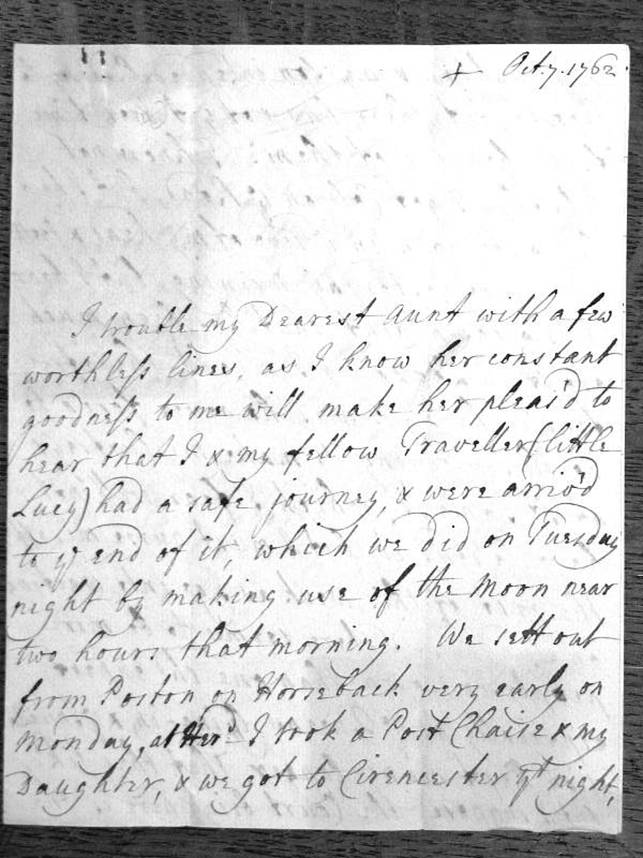 + Oct. 7. 1762
I trouble my Dearest Aunt with a few
worthless lines, as I know her constant
goodness to me will make her pleas'd to
hear that I & my fellow Traveller (little
Lucy) had a safe journey, & were arriv'd
to ye end of it, which we did on Tuesday
night by making use of the Moon near
two hours that morning. We sett out
from Poston on Horseback very early on
Monday, at Herd I took a Post Chaise & my
Daughter, & we got to Cirencester yt night,